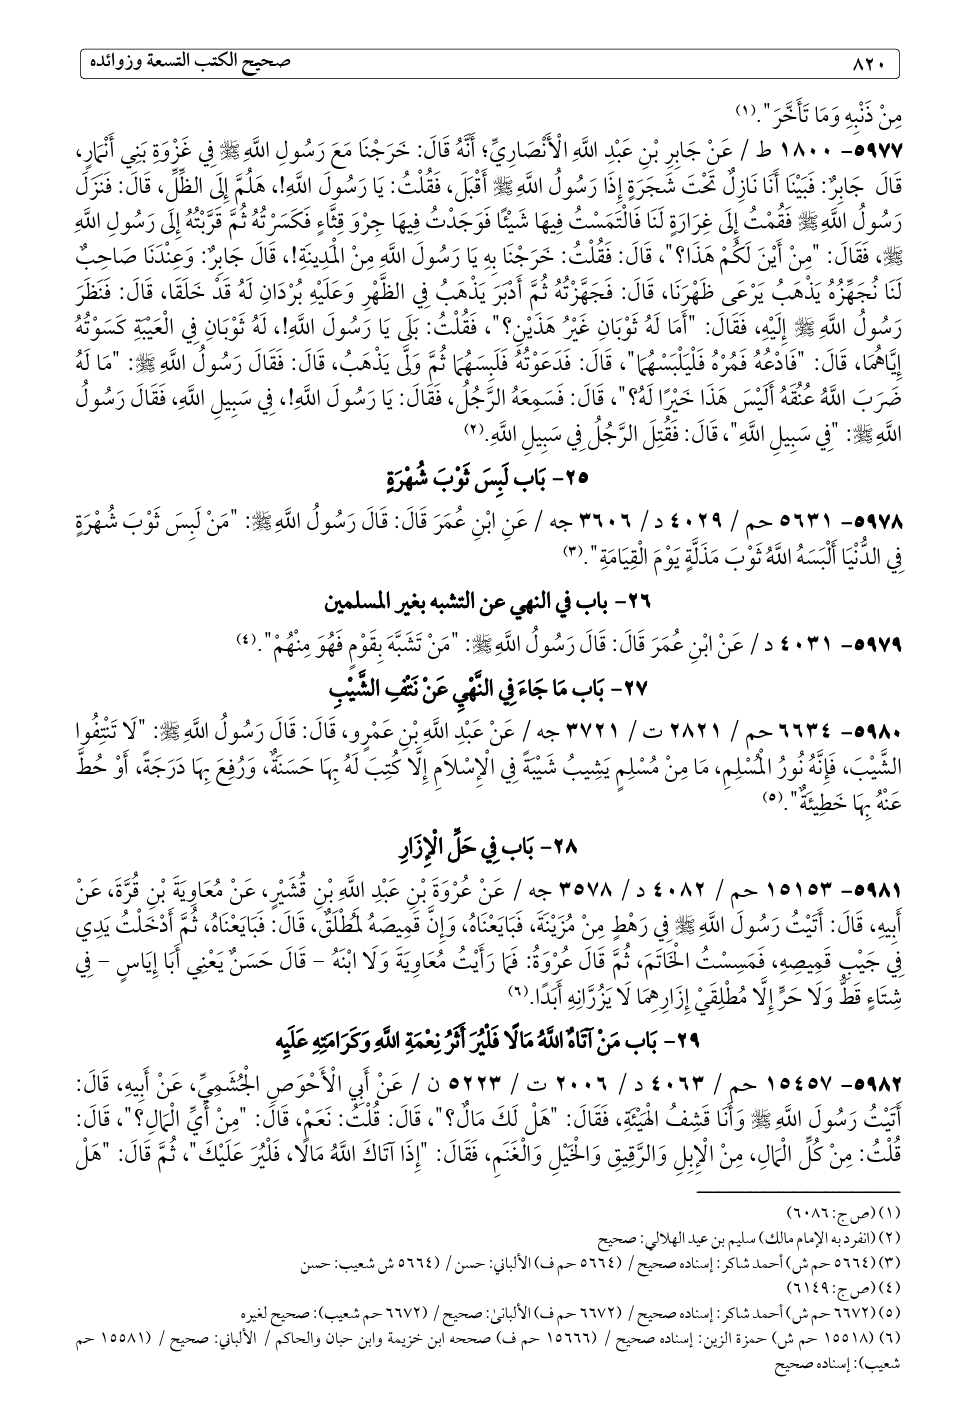 ٨٢٠ صحيح الكتب التسعة وزوائده
مِنْ ذَنْبِهِ وَمَا تَأَخَّرَ". (١)
٥٩٧٧- ١٨٠٠ ط / عَنْ جَابِرِ بْنِ عَبْدِ اللَّهِ الْأَنْصَارِيِّ؛ أَنَّهُ قَالَ: خَرَجْنَا مَعَ رَسُولِ اللَّهِ ﷺ فِي غَزْوَةِ بَنِي أَنْمَارٍ،
قَالَ جَابِرٌ: فَبَيْنَا أَنَا نَازِلٌ تَحْتَ شَجَرَةٍ إِذَا رَسُولُ اللَّهِ ﷺ أَقْبَلَ، فَقُلْتُ: يَا رَسُولَ اللَّهِ!، هَلُمَّ إِلَى الظِّلِّ، قَالَ: فَنَزَلَ
رَسُولُ اللَّهِ ﷺ فَقُمْتُ إِلَى غِرَارَةٍ لَنَا فَالْتَمَسْتُ فِيهَا شَيْئًا فَوَجَدْتُ فِيهَا جِرْوَ قِثَّاءٍ فَكَسَرْتُهُ ثُمَّ قَرَّبْتُهُ إِلَى رَسُولِ اللَّهِ
ﷺ، فَقَالَ: "مِنْ أَيْنَ لَكُمْ هَذَا؟"، قَالَ: فَقُلْتُ: خَرَجْنَا بِهِ يَا رَسُولَ اللَّهِ مِنْ الْمَدِينَةِ!، قَالَ جَابِرٌ: وَعِنْدَنَا صَاحِبٌ
لَنَا نُجَهِّزُهُ يَذْهَبُ يَرْعَى ظَهْرَنَا، قَالَ: فَجَهَّزْتُهُ ثُمَّ أَدْبَرَ يَذْهَبُ فِي الظَّهْرِ وَعَلَيْهِ بُرْدَانِ لَهُ قَدْ خَلَقَا، قَالَ: فَنَظَرَ
رَسُولُ اللَّهِ ﷺ إِلَيْهِ، فَقَالَ: "أَمَا لَهُ ثَوْبَانِ غَيْرُ هَذَيْنِ؟"، فَقُلْتُ: بَلَى يَا رَسُولَ اللَّهِ!، لَهُ ثَوْبَانِ فِي الْعَيْبَةِ كَسَوْتُهُ
إِيَّاهُمَا، قَالَ: "فَادْعُهُ فَمُرْهُ فَلْيَلْبَسْهُمَا"، قَالَ: فَدَعَوْتُهُ فَلَبِسَهُمَا ثُمَّ وَلَّى يَذْهَبُ، قَالَ: فَقَالَ رَسُولُ اللَّهِ ﷺ: "مَا لَهُ
ضَرَبَ اللَّهُ عُنُقَهُ أَلَيْسَ هَذَا خَيْرًا لَهُ؟"، قَالَ: فَسَمِعَهُ الرَّجُلُ، فَقَالَ: يَا رَسُولَ اللَّهِ!، فِي سَبِيلِ اللَّهِ، فَقَالَ رَسُولُ
اللَّهِ ﷺ: "فِي سَبِيلِ اللَّهِ"، قَالَ: فَقُتِلَ الرَّجُلُ فِي سَبِيلِ اللَّهِ. (٢)
٢٥- بَاب لَبِسَ ثَوْبَ شُهْرَةٍ
٥٩٧٨- ٥٦٣١ حم / ٤٠٢٩ د/ ٣٦٠٦ جه / عَنِ ابْنِ عُمَرَ قَالَ: قَالَ رَسُولُ اللَّهِ ﷺ: "مَنْ لَبِسَ ثَوْبَ شُهْرَةٍ
فِي الدُّنْيَا أَلْبَسَهُ اللَّهُ ثَوْبَ مَذَلَّةٍ يَوْمَ الْقِيَامَةِ". (٣)
٢٦- باب في النهي عن التشبه بغير المسلمين
٥٩٧٩- ٤٠٣١ د/ عَنْ ابْنِ عُمَرَ قَالَ: قَالَ رَسُولُ اللَّهِ ﷺ: "مَنْ تَشَبَّهَ بِقَوْمٍ فَهُوَ مِنْهُمْ". (٤)
٢٧- بَاب مَا جَاءَ فِي النَّهْيِ عَنْ نَتْفِ الشَّيْبِ
٥٩٨٠- ٦٦٣٤ حم / ٢٨٢١ ت / ٣٧٢١ جه / عَنْ عَبْدِ اللَّهِ بْنِ عَمْرٍو، قَالَ: قَالَ رَسُولُ اللَّهِ ﷺ: "لَا تَنْتِفُوا
الشَّيْبَ، فَإِنَّهُ نُورُ الْمُسْلِمِ، مَا مِنْ مُسْلِمٍ يَشِيبُ شَيْبَةً فِي الْإِسْلَامِ إِلَّا كُتِبَ لَهُ بِهَا حَسَنَةٌ، وَرُفِعَ بِهَا دَرَجَةً، أَوْ حُطَّ
عَنْهُ بِهَا خَطِيئَةٌ". (٥)
٢٨- بَاب فِي حَلِّ الْإِزَارِ
٥٩٨١- ١٥١٥٣ حم / ٤٠٨٢ د/ ٣٥٧٨ جه / عَنْ عُرْوَةَ بْنِ عَبْدِ اللَّهِ بْنِ قُشَيْرٍ، عَنْ مُعَاوِيَةَ بْنِ قُرَّةَ، عَنْ
أَبِيهِ، قَالَ: أَتَيْتُ رَسُولَ اللَّهِ ﷺ فِي رَهْطٍ مِنْ مُزَيْنَةَ، فَبَايَعْنَاهُ، وَإِنَّ قَمِيصَهُ لَمُطْلَقٌ، قَالَ: فَبَايَعْنَاهُ، ثُمَّ أَدْخَلْتُ يَدِي
فِي جَيْبِ قَمِيصِهِ، فَمَسِسْتُ الْخَاتَمَ، ثُمَّ قَالَ عُرْوَةُ: فَمَا رَأَيْتُ مُعَاوِيَةَ وَلَا ابْنَهُ - قَالَ حَسَنٌ يَعْنِي أَبَا إِيَاسٍ - فِي
شِتَاءٍ قَطُّ وَلَا حَرٍّ إِلَّا مُطْلِقَيْ إِزَارِهِمَا لَا يَزُرَّانِهِ أَبَدًا. (٦)
٢٩- بَاب مَنْ آتَاهُ اللَّهُ مَالًا فَلْيُرَ أَثَرُ نِعْمَةِ اللَّهِ وَكَرَامَتِهِ عَلَيهِ
٥٩٨٢- ١٥٤٥٧ حم / ٤٠٦٣ د/ ٢٠٠٦ ت / ٥٢٢٣ ن / عَنْ أَبِي الْأَحْوَصِ الْجُشَمِيِّ، عَنْ أَبِيهِ، قَالَ:
أَتَيْتُ رَسُولَ اللَّهِ ﷺ وَأَنَا قَشِفُ الْهَيْئَةِ، فَقَالَ: "هَلْ لَكَ مَالٌ؟"، قَالَ: قُلْتُ: نَعَمْ، قَالَ: "مِنْ أَيِّ الْمَالِ؟"، قَالَ:
قُلْتُ: مِنْ كُلِّ الْمَالِ، مِنْ الْإِبِلِ وَالرَّقِيقِ وَالْخَيْلِ وَالْغَنَمِ، فَقَالَ: "إِذَا آتَاكَ اللَّهُ مَالًا، فَلْيُرَ عَلَيْكَ"، ثُمَّ قَالَ: "هَلْ
(١) (ص ج: ٦٠٨٦)
(٢) (انفرد به الإمام مالك) سليم بن عيد الهلالي: صحيح
(٣) (٥٦٦٤ حم ش) أحمد شاكر: إسناده صحيح / (٥٦٦٤ حم ف) الألباني: حسن / (٥٦٦٤ ش شعيب: حسن
(٤) (ص ج: ٦١٤٩)
(٥) (٦٦٧٢ حم ش) أحمد شاكر: إسناده صحيح / (٦٦٧٢ حم ف) الألبانى: صحيح / (٦٦٧٢ حم شعيب): صحيح لغيره
(٦) (١٥٥١٨ حم ش) حمزة الزين: إسناده صحيح / (١٥٦٦٦ حم ف) صححه ابن خزيمة وابن حبان والحاكم / الألباني: صحيح / (١٥٥٨١ حم
شعيب): إسناده صحيح